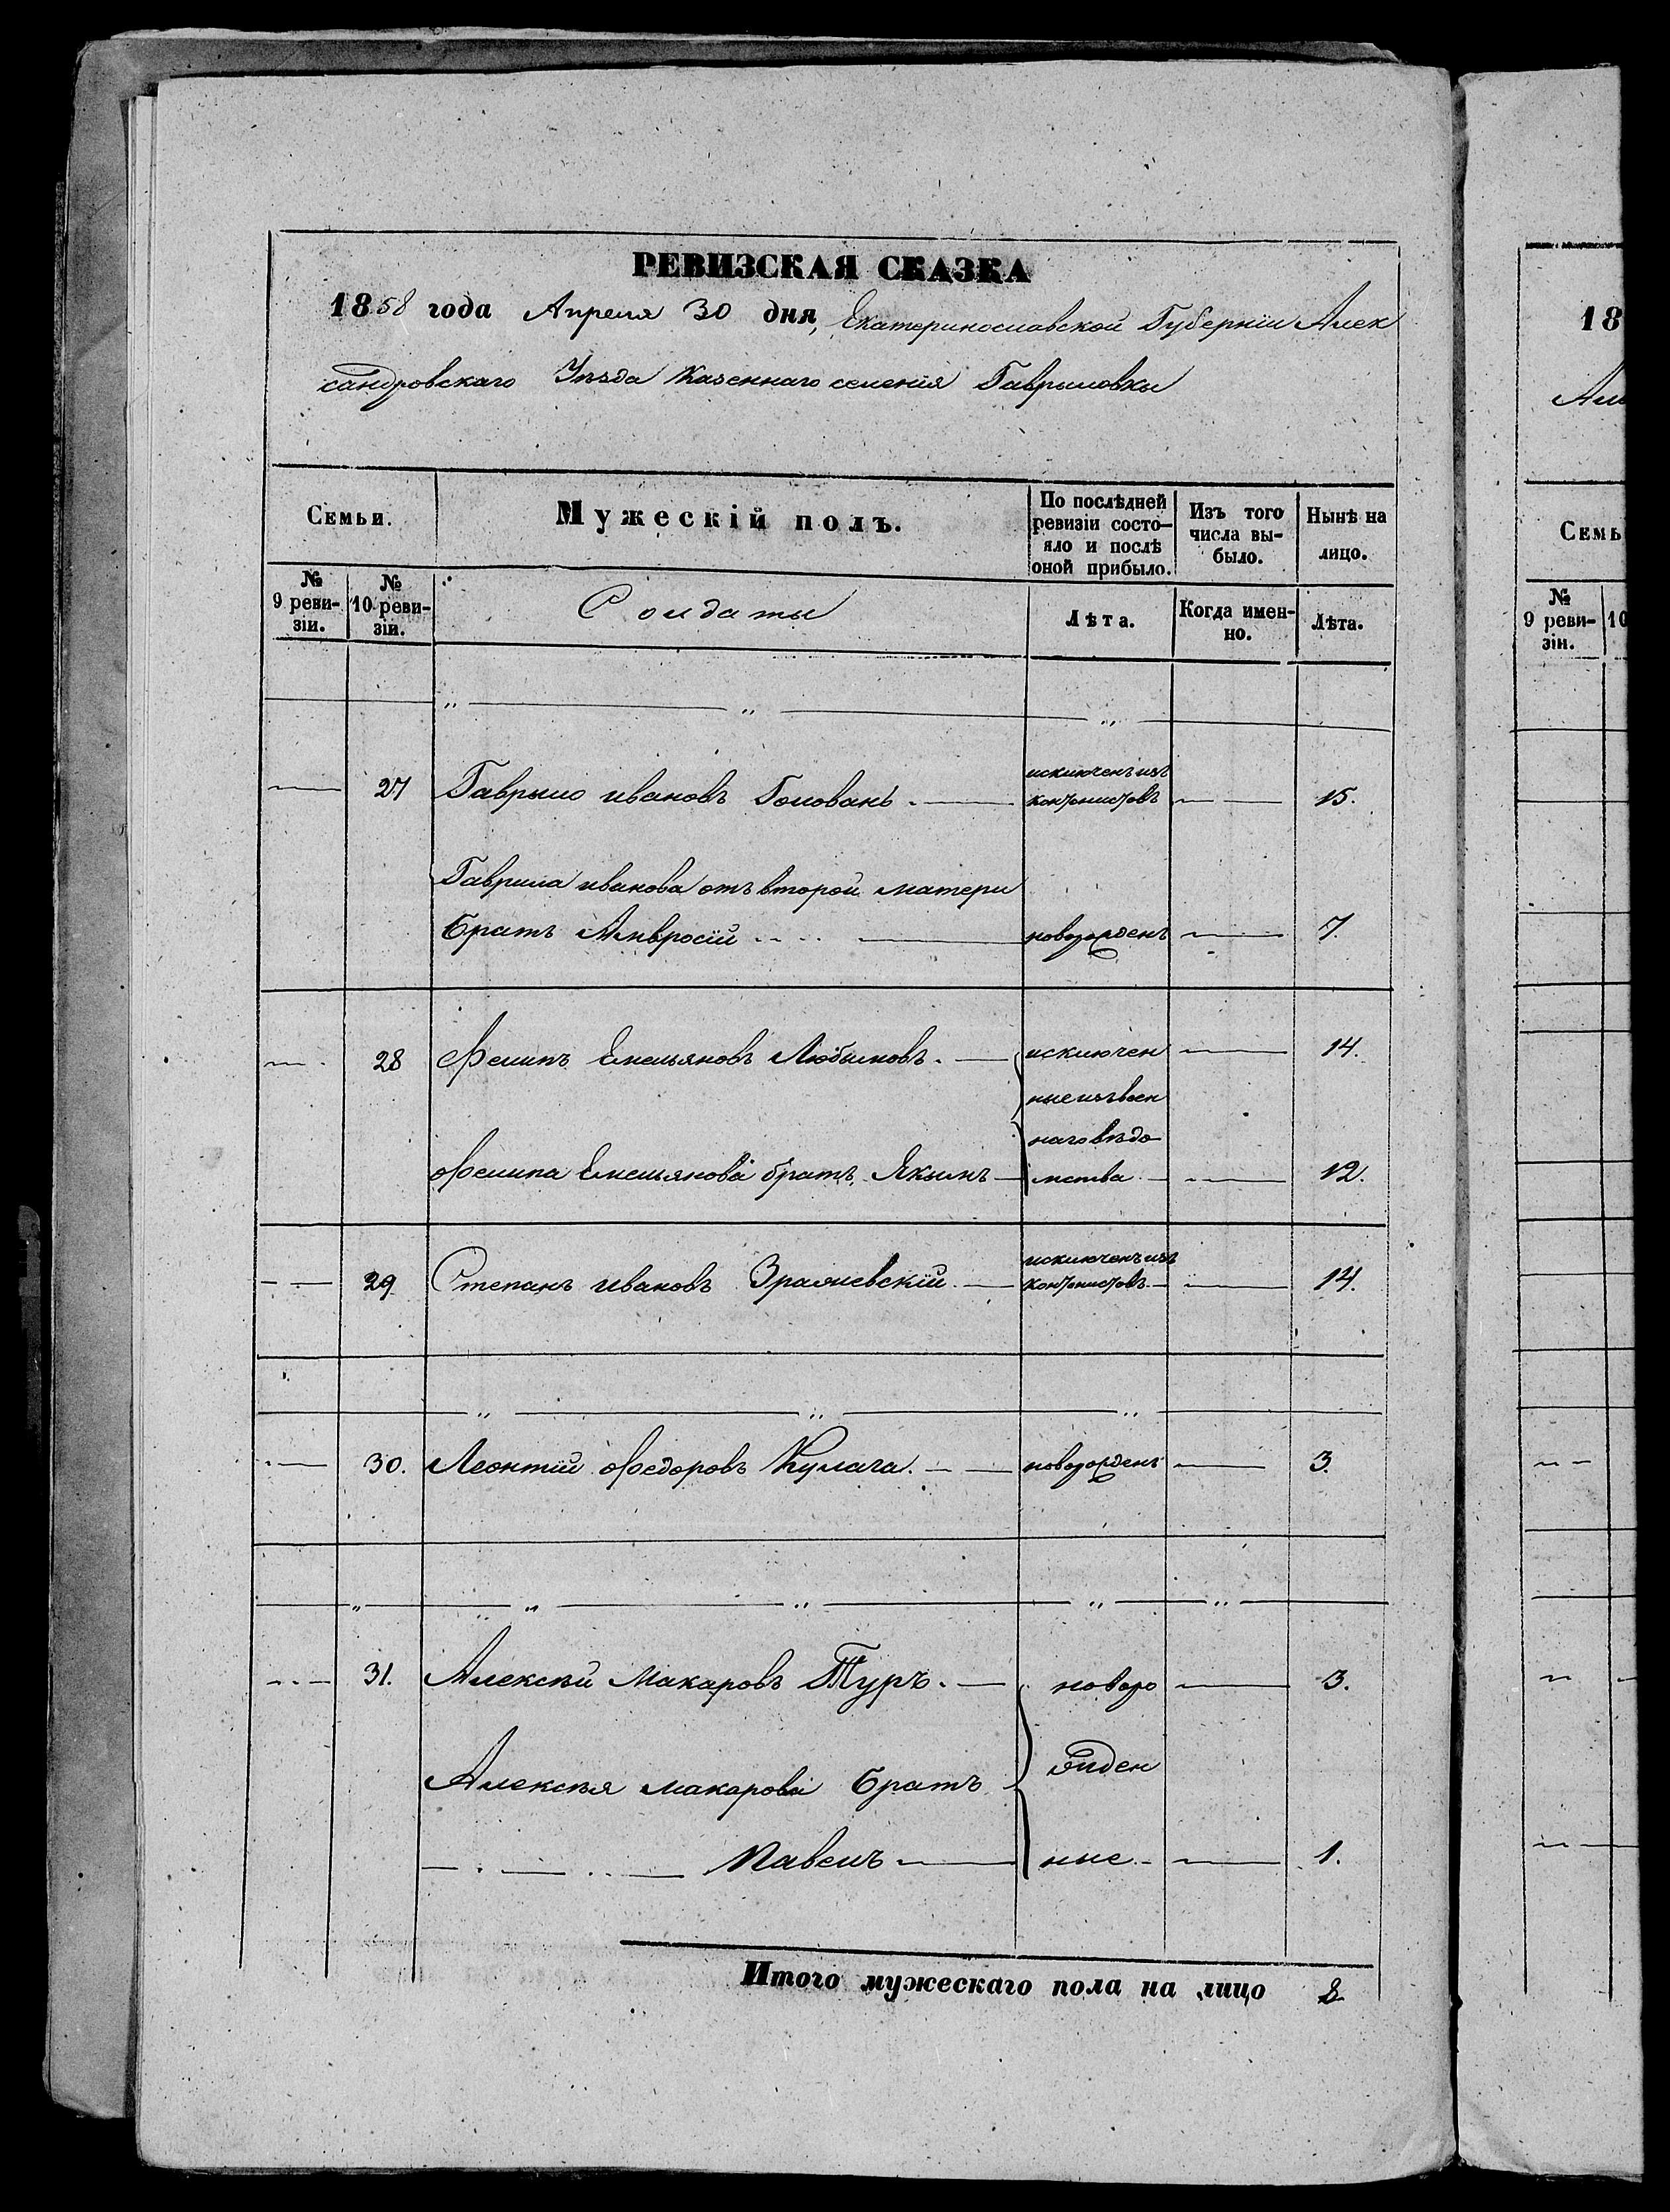 РЕВИЗСКАЯ СКАЗКА
1858 года Апреля 30 дня, Екатеринославской Губерніи Алек
сандровскаго Уѣзда Казеннаго селенія Гаврыловки
Семьи.
Мужескій полъ.
По послѣдней ревизіи состо-яло и послѣ оной прибыло.
Изъ того числа вы-было.
Нынѣ на лицо.
№ 9 реви-зіи.
№ 10 реви-зіи.
Солдаты
Лѣта.
Когда имен-но.
Лѣта.
27 Гаврыло ивановъ Голованъ. исключенъ изъ кантонистовъ 15.
Гаврила иванова отъ второй матери
братъ Амвросій новорожденъ 7.
28 Фелипъ Емельяновъ Любымовъ. исключен 14.
ные изъ воен
наго вѣдо
Фелипа Емельянова братъ Якымъ мства 12.
29 Степанъ ивановъ исключенъ изъ кантонистовъ 14.
30. Леонтій Федоровъ Кулага. новорожденъ 3.
31. Алексѣй Макаровъ Туръ. новоро 3.
Алексѣя Макарова братъ жден
Павелъ ные 1.
Итого мужескаго пола на лицо 8
18
Але
Семь
№ 9 реви-зіи.
10